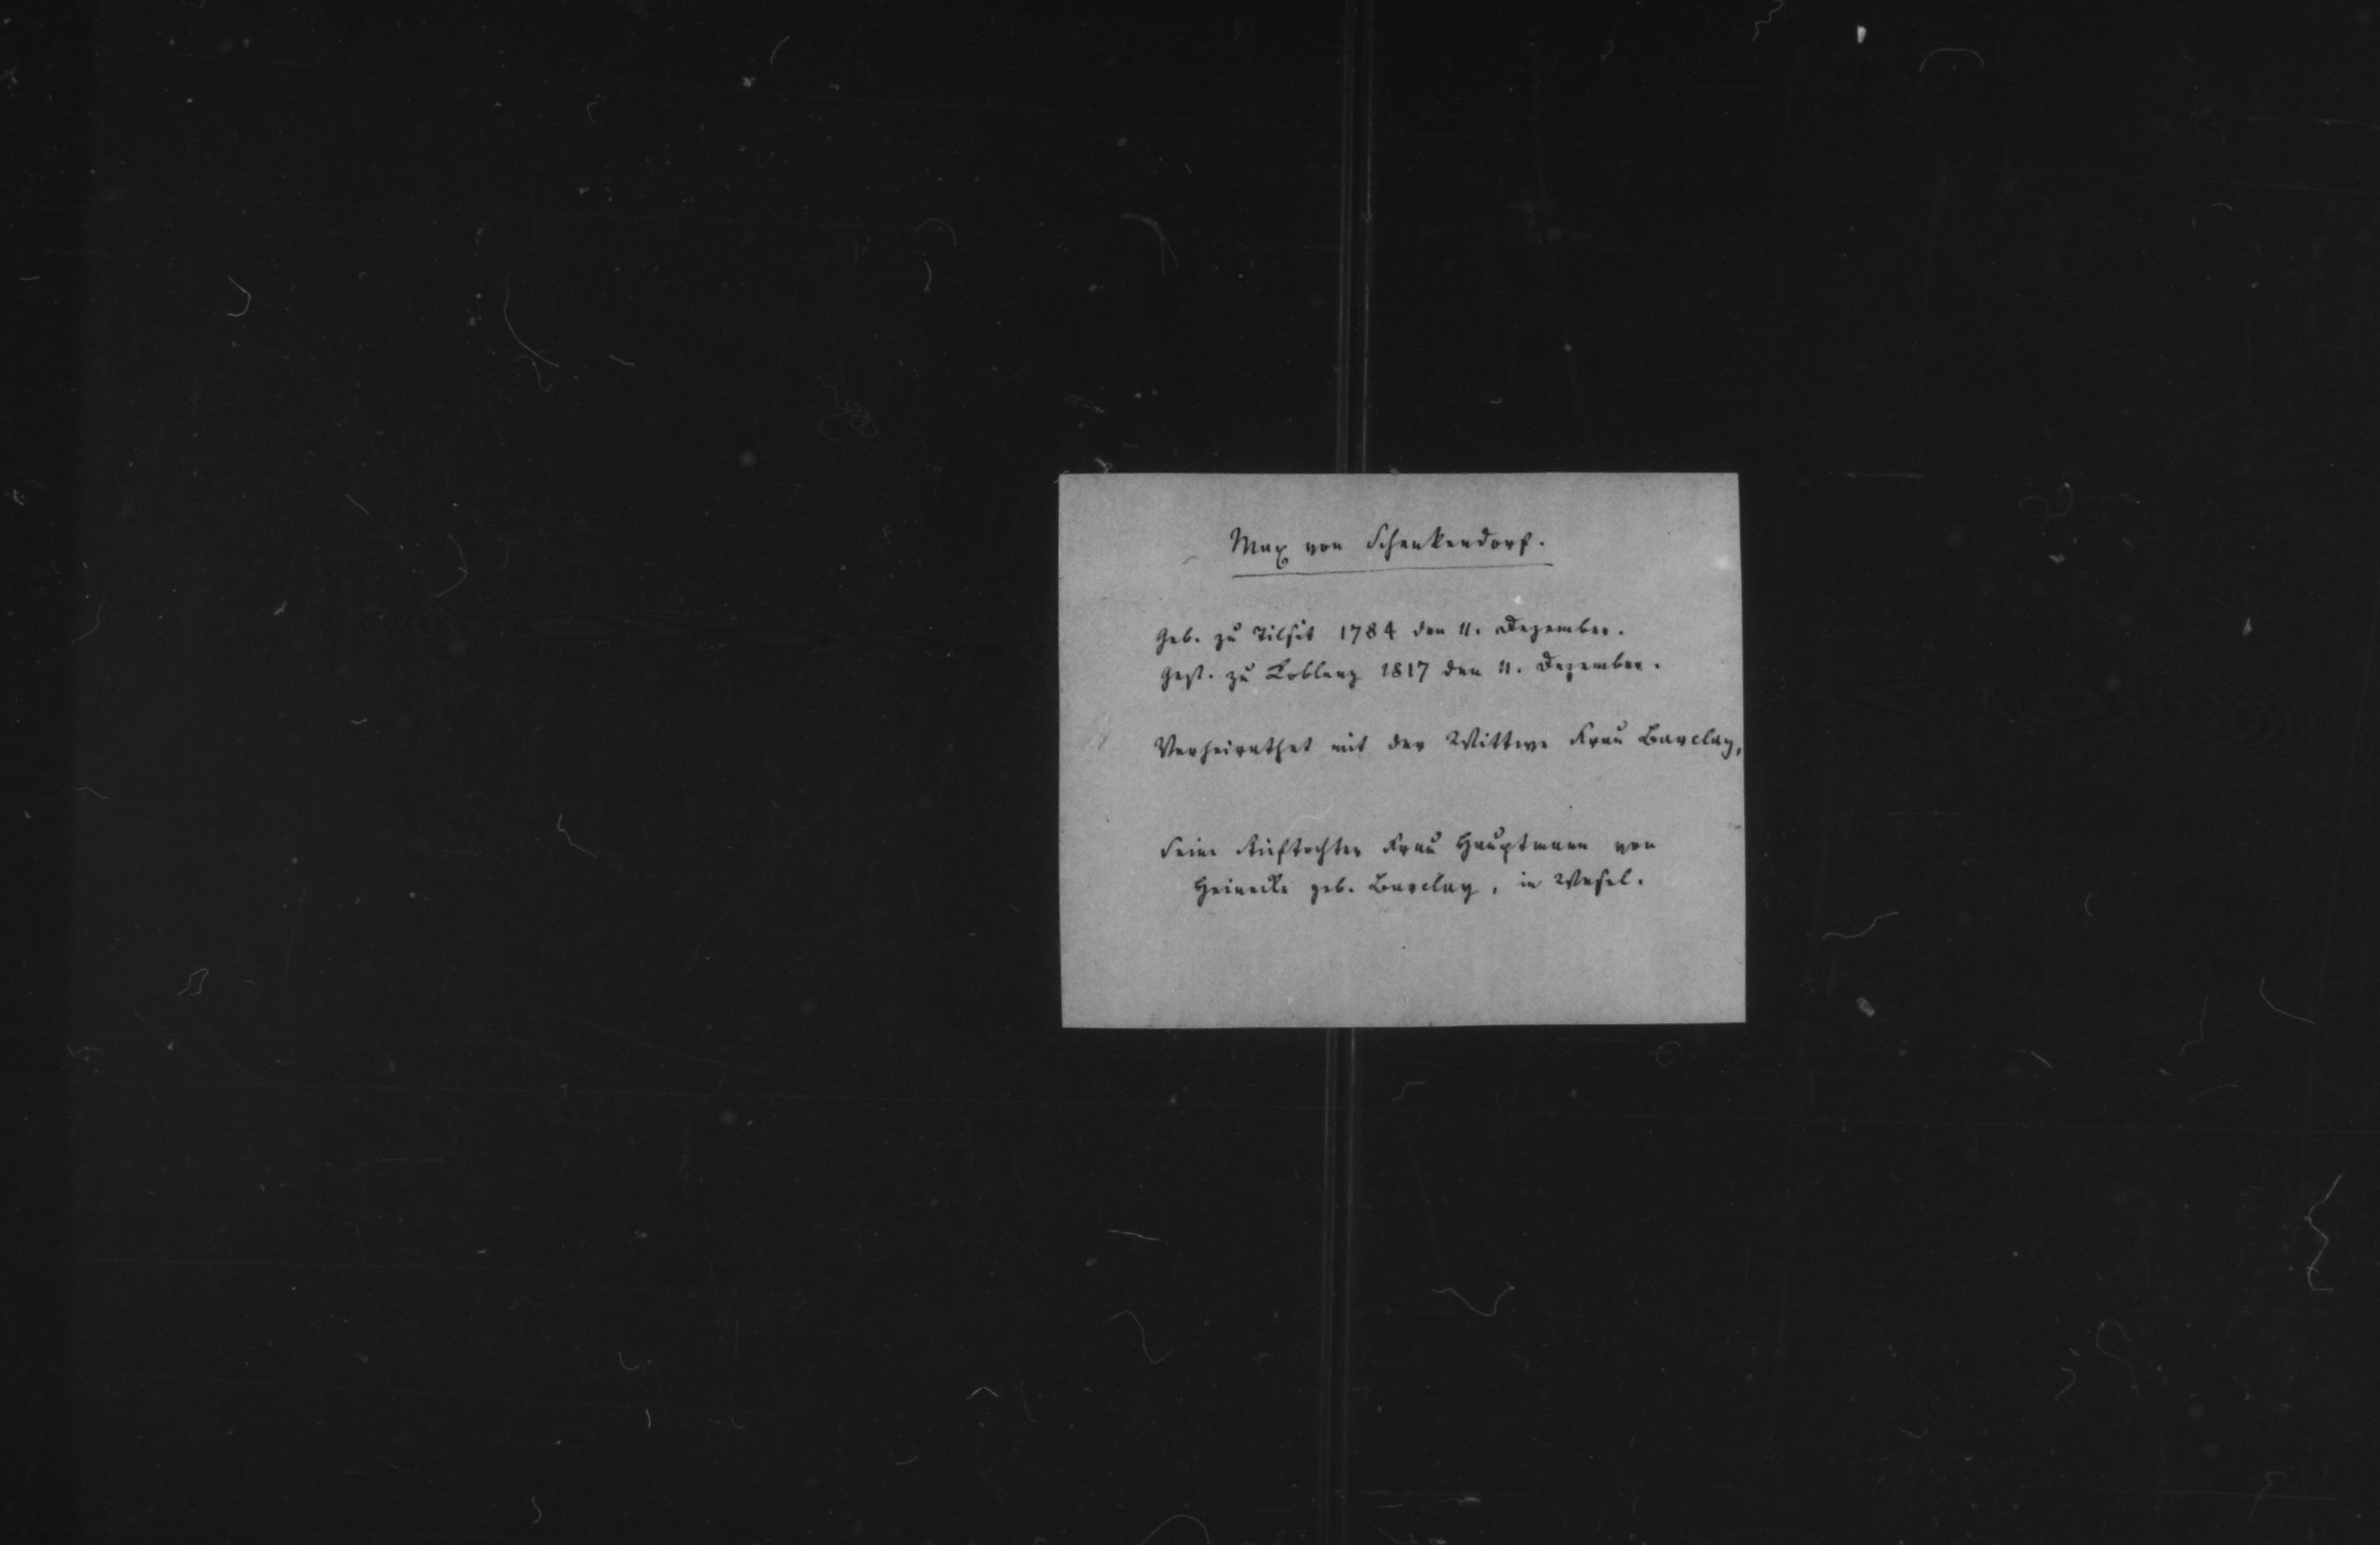 Max von Schenkendorf.
Geb. zu Tilsit 1784 den 11. Dezember.
Gest. zu Koblenz 1817 den 11. Dezember.
Verheirathet mit der Wittwe Frau Barclay,
Seine Stieftochter Frau Hauptmann von
Heinecke geb. Barclay, in Wesel.